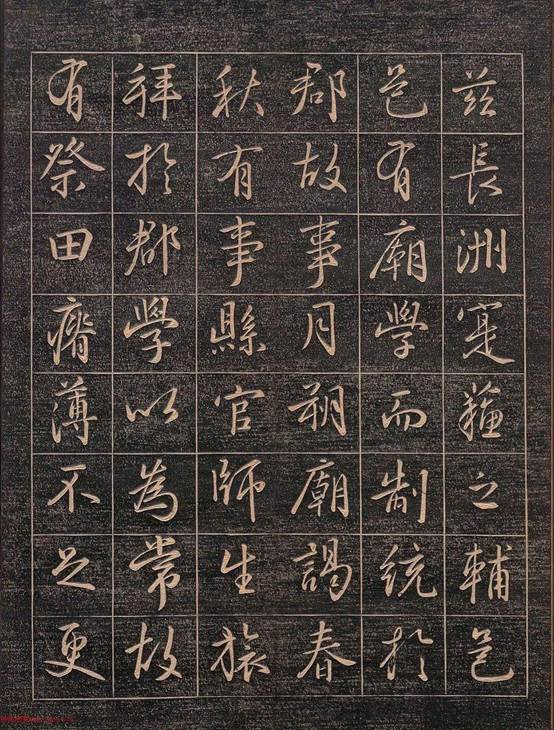 兹長洲寔蘓之輔邑
邑有廟學而制統於
郡故事月朔廟謁春
秋有事縣官師生旅
拜於郡學以為常故
有祭田瘠薄不足更